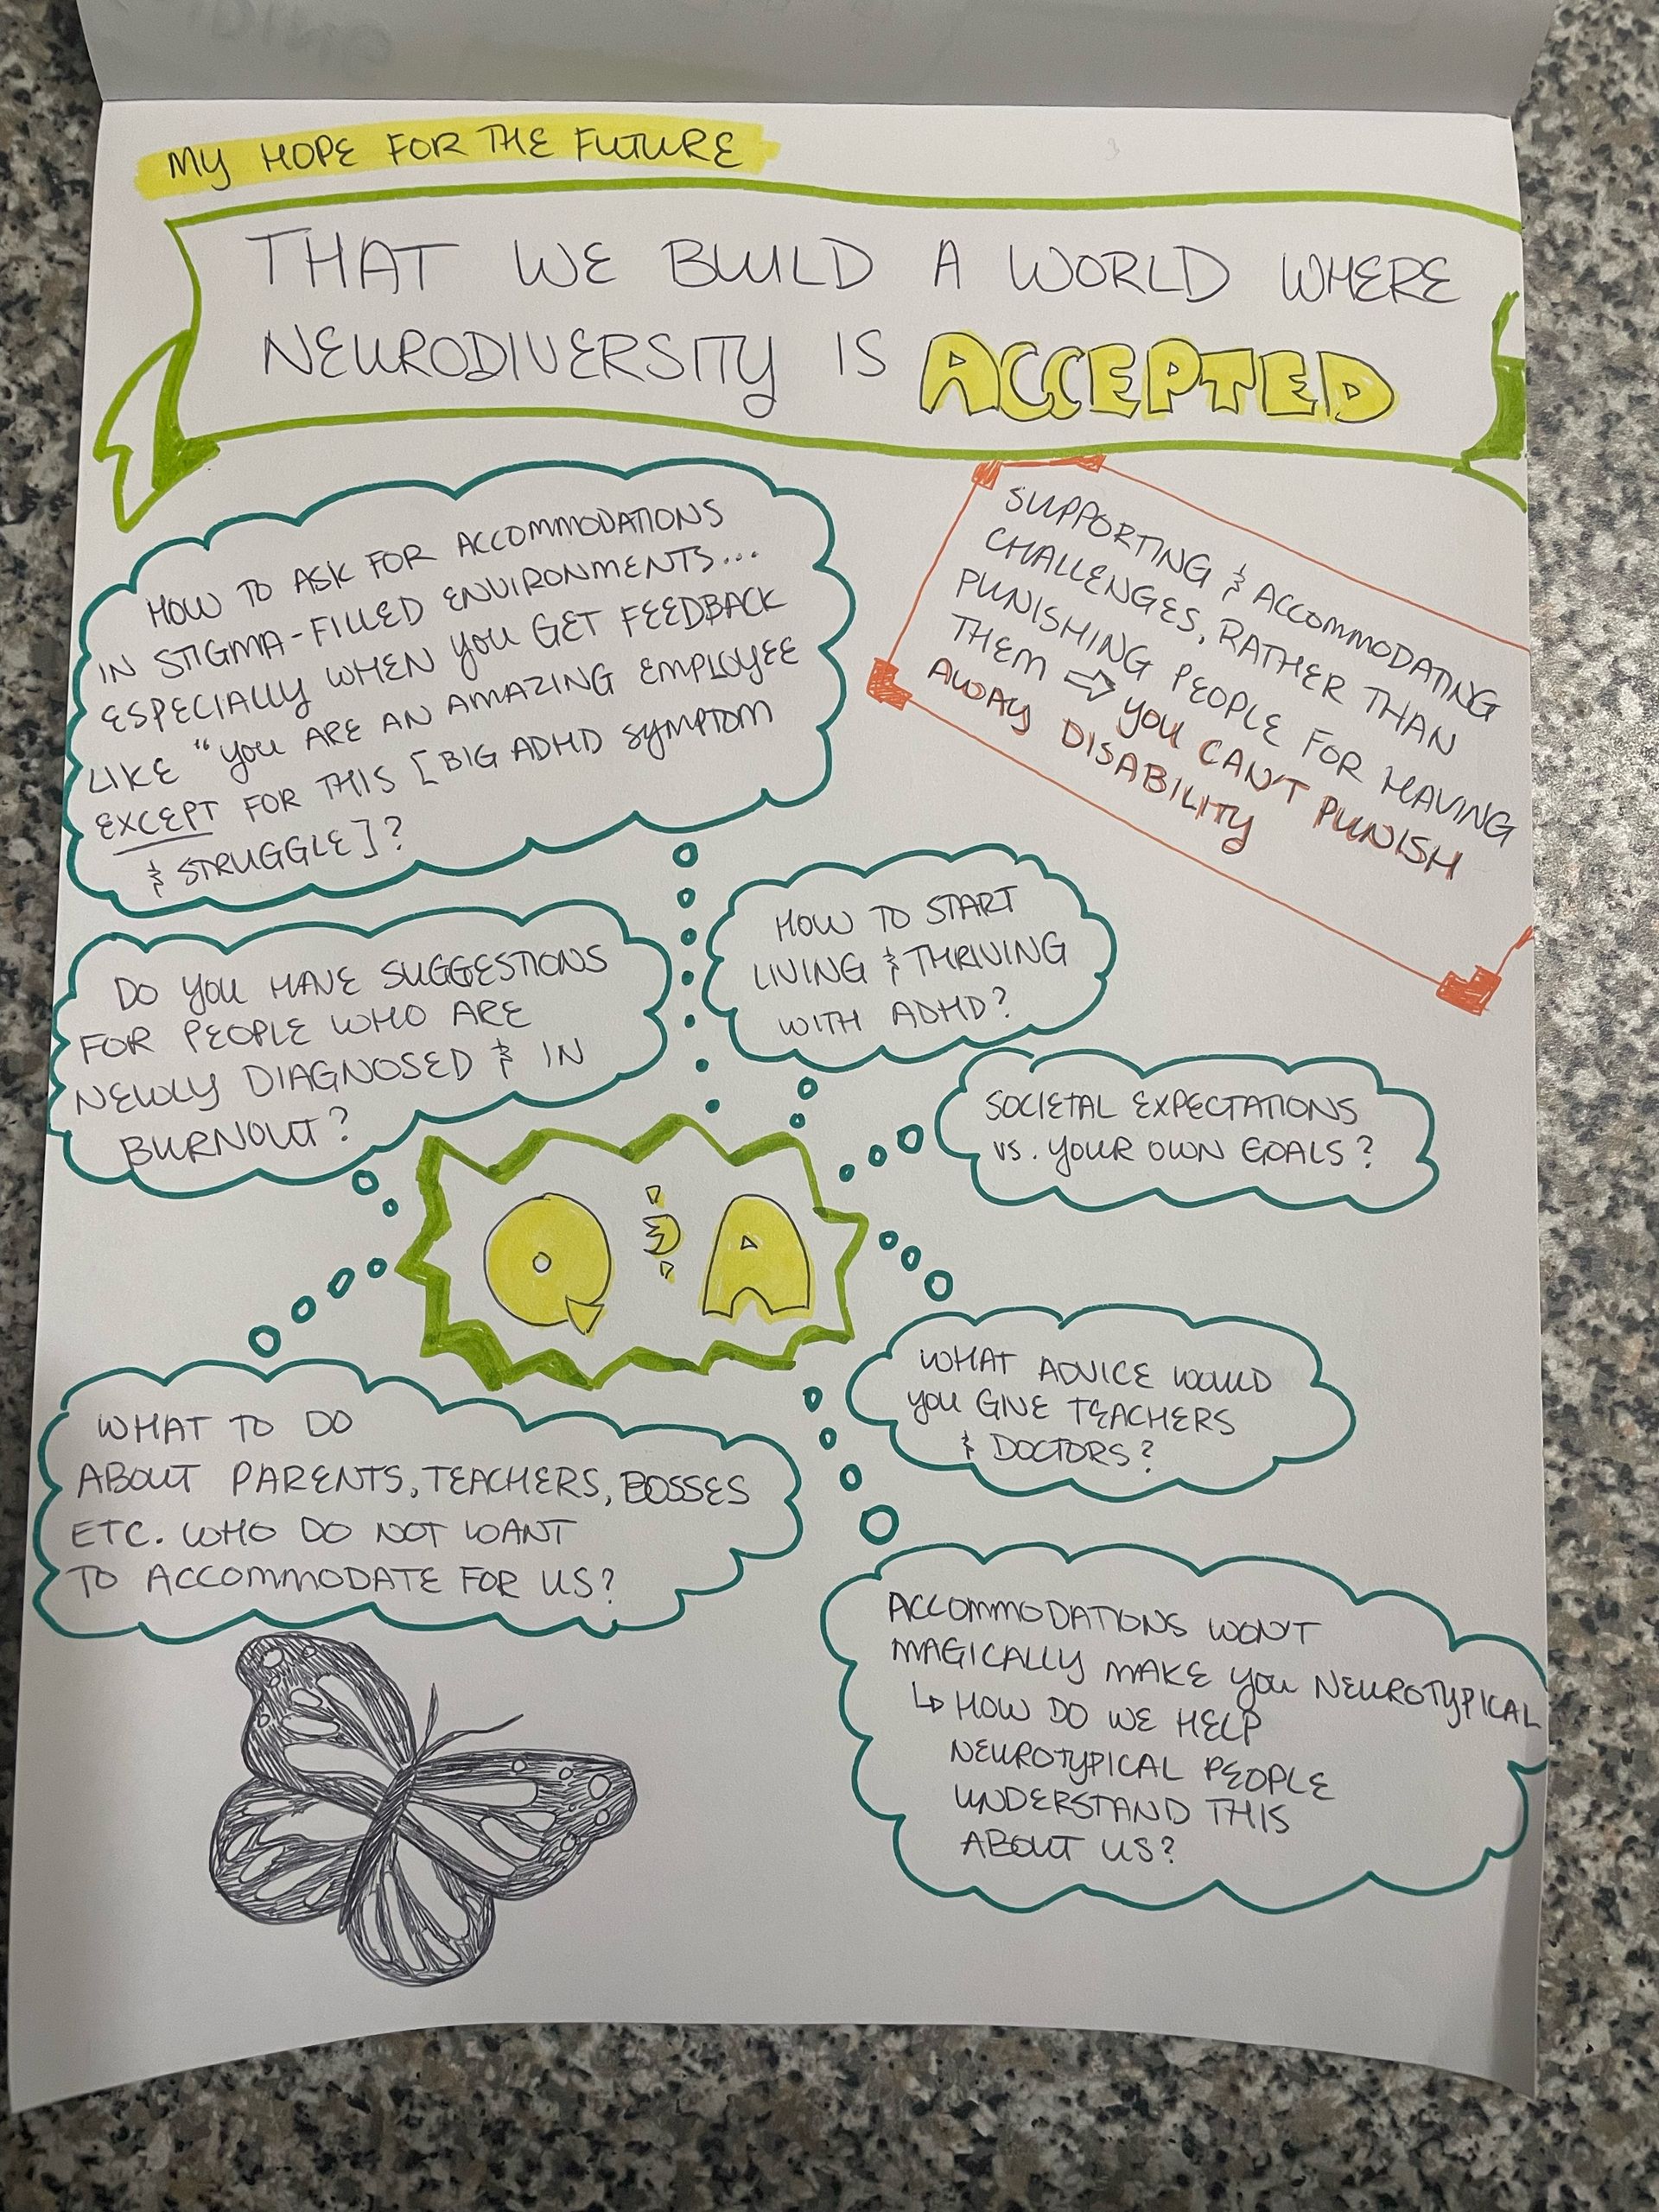 MY HOPE FOR THE FUTURE
THAT WE BUILD A WORLD WHERE
NEURODIVERSITY IS ACCEPTED
HOW TO ASK FOR ACCOMMODATIONS
IN STIGMA-FILLED ENVIRONMENTS...
ESPECIALLY WHEN YOU GET FEEDBACK
LIKE "YOU ARE AN AMAZING EMPLOYEE
EXCEPT FOR THIS [BIG ADHD SYMPTOM
& STRUGGLE]?
SUPPORTING & ACCOMMODATING
CHALLENGES, RATHER THAN
PUNISHING PEOPLE FOR HAVING
THEM ⇨ YOU CAN'T PUNISH
AWAY DISABILITY
DO YOU HAVE SUGGESTIONS
FOR PEOPLE WHO ARE
NEWLY DIAGNOSED & IN
BURNOUT?
HOW TO START
LIVING & THRIVING
WITH ADHD?
SOCIETAL EXPECTATIONS
VS. YOUR OWN GOALS?
Q & A
WHAT ADVICE WOULD
YOU GIVE TEACHERS
& DOCTORS?
WHAT TO DO
ABOUT PARENTS, TEACHERS, BOSSES
ETC. WHO DO NOT WANT
TO ACCOMMODATE FOR US?
ACCOMMODATIONS WON'T
MAGICALLY MAKE YOU NEUROTYPICAL
↳ HOW DO WE HELP
NEUROTYPICAL PEOPLE
UNDERSTAND THIS
ABOUT US?